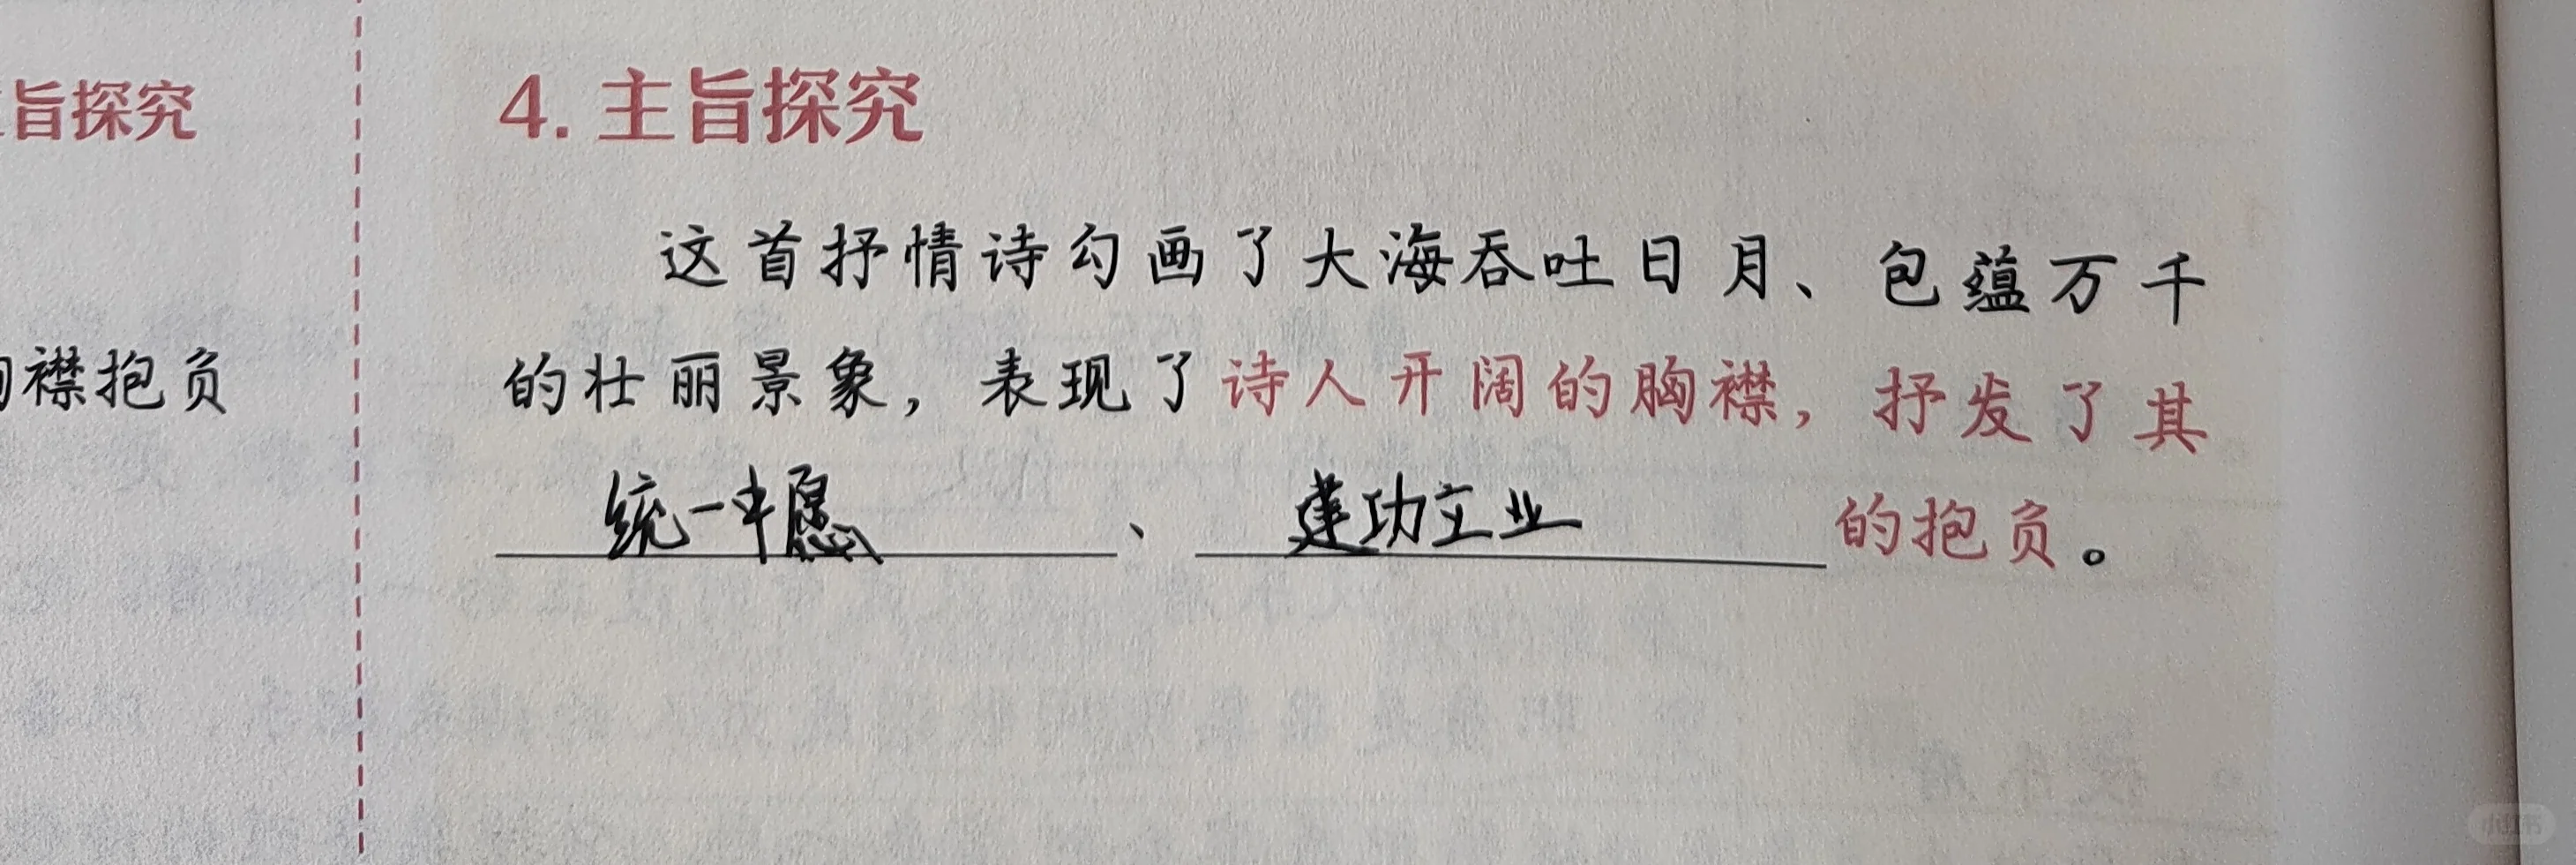 旨探究
襟抱负
4. 主旨探究
这首抒情诗勾画了大海吞吐日月、包蕴万千
的壮丽景象，表现了诗人开阔的胸襟，抒发了其
统一中愿、建功立业的抱负。